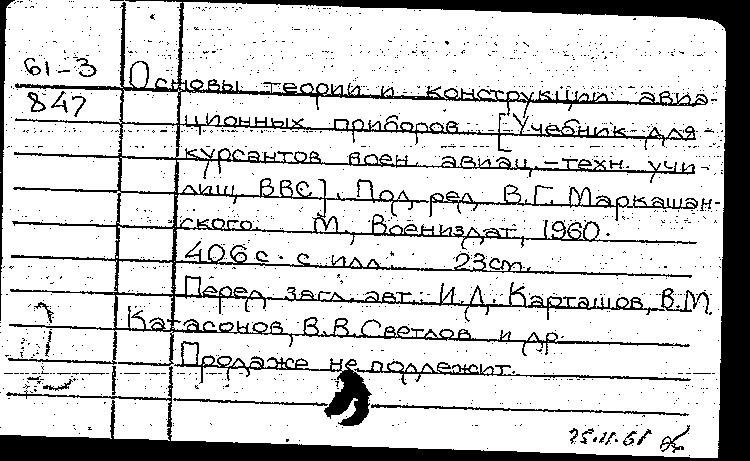 61-3
847
Основы теории и конструкции авиа-
ционных приборов. [Учебник для
курсантов воен. авиац.-техн. учи-
лищ ВВС]. Под ред. В.Г. Маркашан-
ского. М., Воениздат, 1960.
406 с. с илл. 23 см.
Перед загл. авт.: И.Д. Карташов, В.М.
Катасонов, В.В. Светлов и др.
Продаже не подлежит.
25.11.61